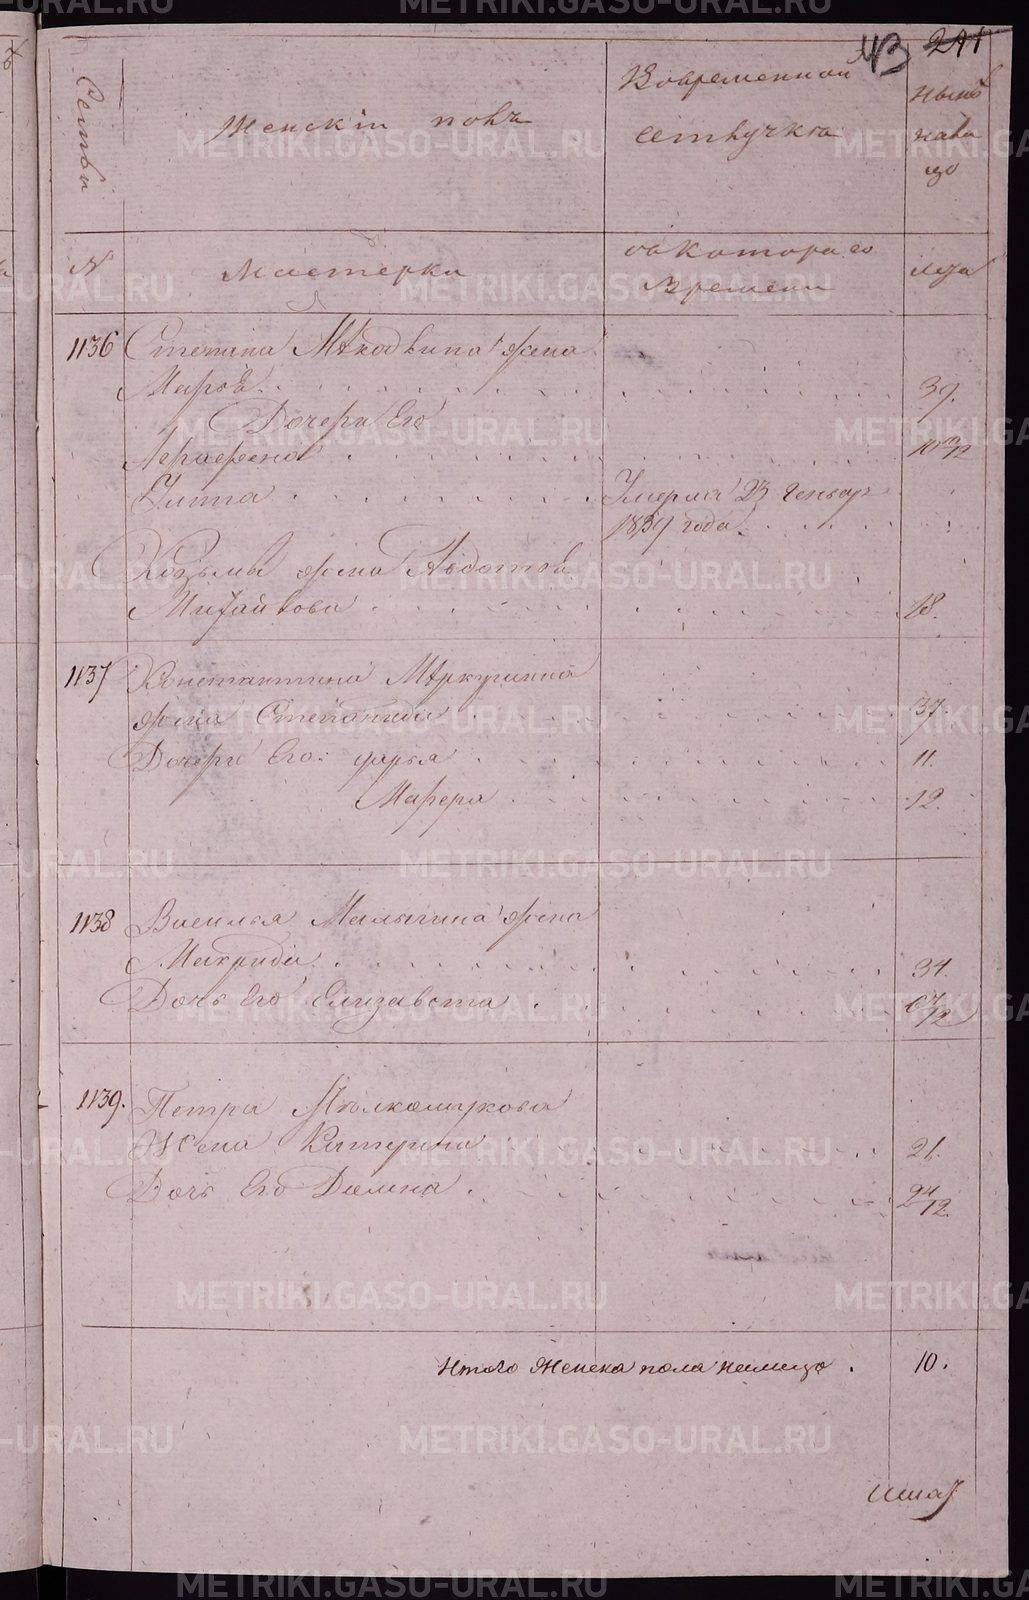 43 241
Семьи
Женскiй полъ
Во временной
отлучкѣ
Нынѣ
на ли
цо
№
Мастерки
съ котораго
времени
лѣта
1136 Степана Мѣховщина жена
Марья 39.
Дочери Его
Парасфена
Улита Умерла 23 Генвар
1839 года
Козьмы жена Авдотья
Михайлова 18.
1137 Константина Меркушина
жена Степанида 37.
Дочери Его: Дарья 11.
Марфера 12.
1138 Василья Малыгина жена
Макрида 34.
Дочь Его Елизавета
1139. Петра Мелкозерова
Жена Катерина 21.
Дочь Его Домна
Итого Женска пола налицо . 10.
METRIKI.GASO-URAL.RU